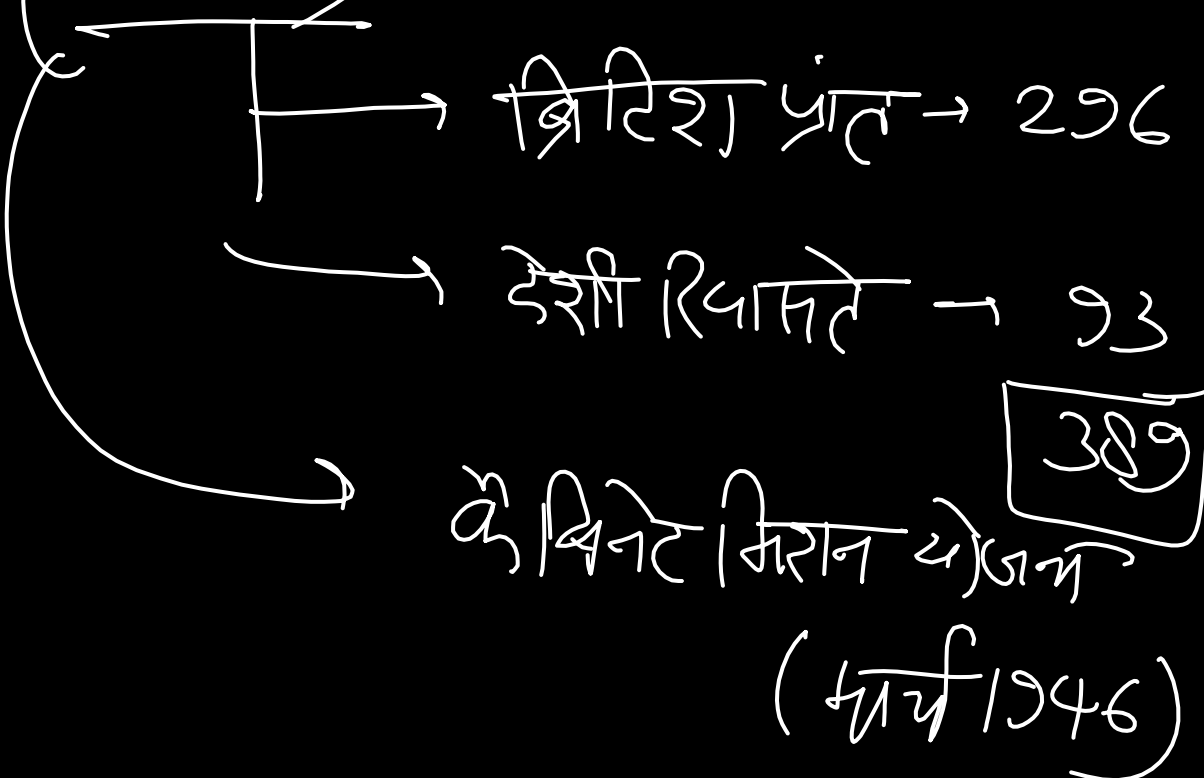 ब्रिटिश प्रांत → 296
देशी रियासते → 93
389
कैबिनेट मिशन योजना
(मार्च 1946)